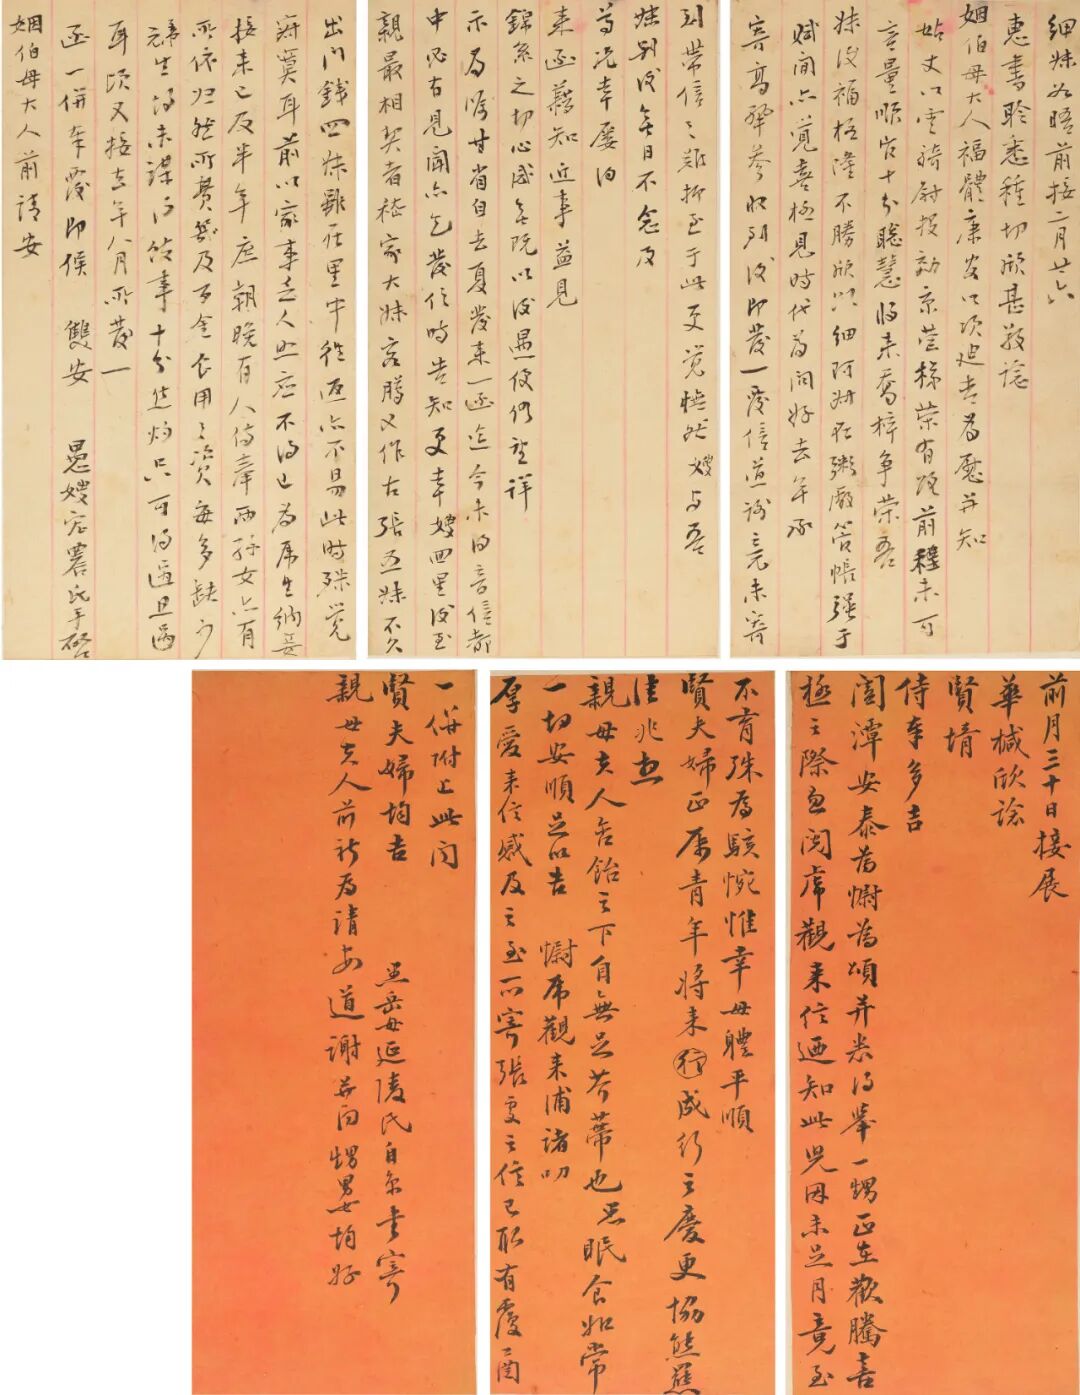 細妹如晤前接二月廿六
惠書聆悉種切欣甚敬諗
姻伯母大人福體康安以次迪吉為慰并知
妹丈以雲騎尉投効京營梯榮有階前程未可
言量順官十分聰慧將來喬梓爭榮吾
妹後福極隆不勝欣以細阿姊在粥廠管帳強于
賦閒亦覺喜極見時代為問好去年承
寄高麗蔘收到後即發一覆信道謝竟未寄
到帶信之難抑至于此更覺悵然嫂與吾
妹別後無日不念及
尊况幸屢向
來函藉知近事益見
錦系之切心感無既以後愚侄們望詳
示為慰甘省自去夏發來一函迄今未得音信都
中必有見聞亦乞發信時告知更幸嫂回里後至
親最相契者嵇家大妹客騰又作古張五妹不久
出門錢四妹雖在里中往返亦不易此時殊覺
寂寞耳前以家事乏人照應不得已為虎生納妾
接來已及半年庶朝晚有人侍奉兩孫女亦有
所依歸然所費幾及百金衣用之資每多缺少
虎生尚未謀得館事十分焦灼只可得過且過
耳頃又接去年八月所發一
函一併奉覆即候 雙安 愚嫂宏農氏手啓
姻伯母大人前請安
前月三十日接展
華緘欣諗
賢壻
侍奉多吉
閤潭安泰為慰為頌并悉得舉一甥正在歡騰喜
極之際忽閱虎觀來信迺知此兒因未足月竟至
不育殊為駭惋惟幸母體平順
賢夫婦正屬青年將來行成行之慶更協熊羆
佳兆也
親母夫人含飴之下自無足芥蒂也忌眠食如常
一切安順足以告 慰虎觀來浦諸叨
厚愛來信感及之至所寄張雯之信已取有覆函
一併附上此問
賢夫婦均吉 愚岳母延陵氏自京書寄
親母夫人前祈為請安道謝并向甥男女均好